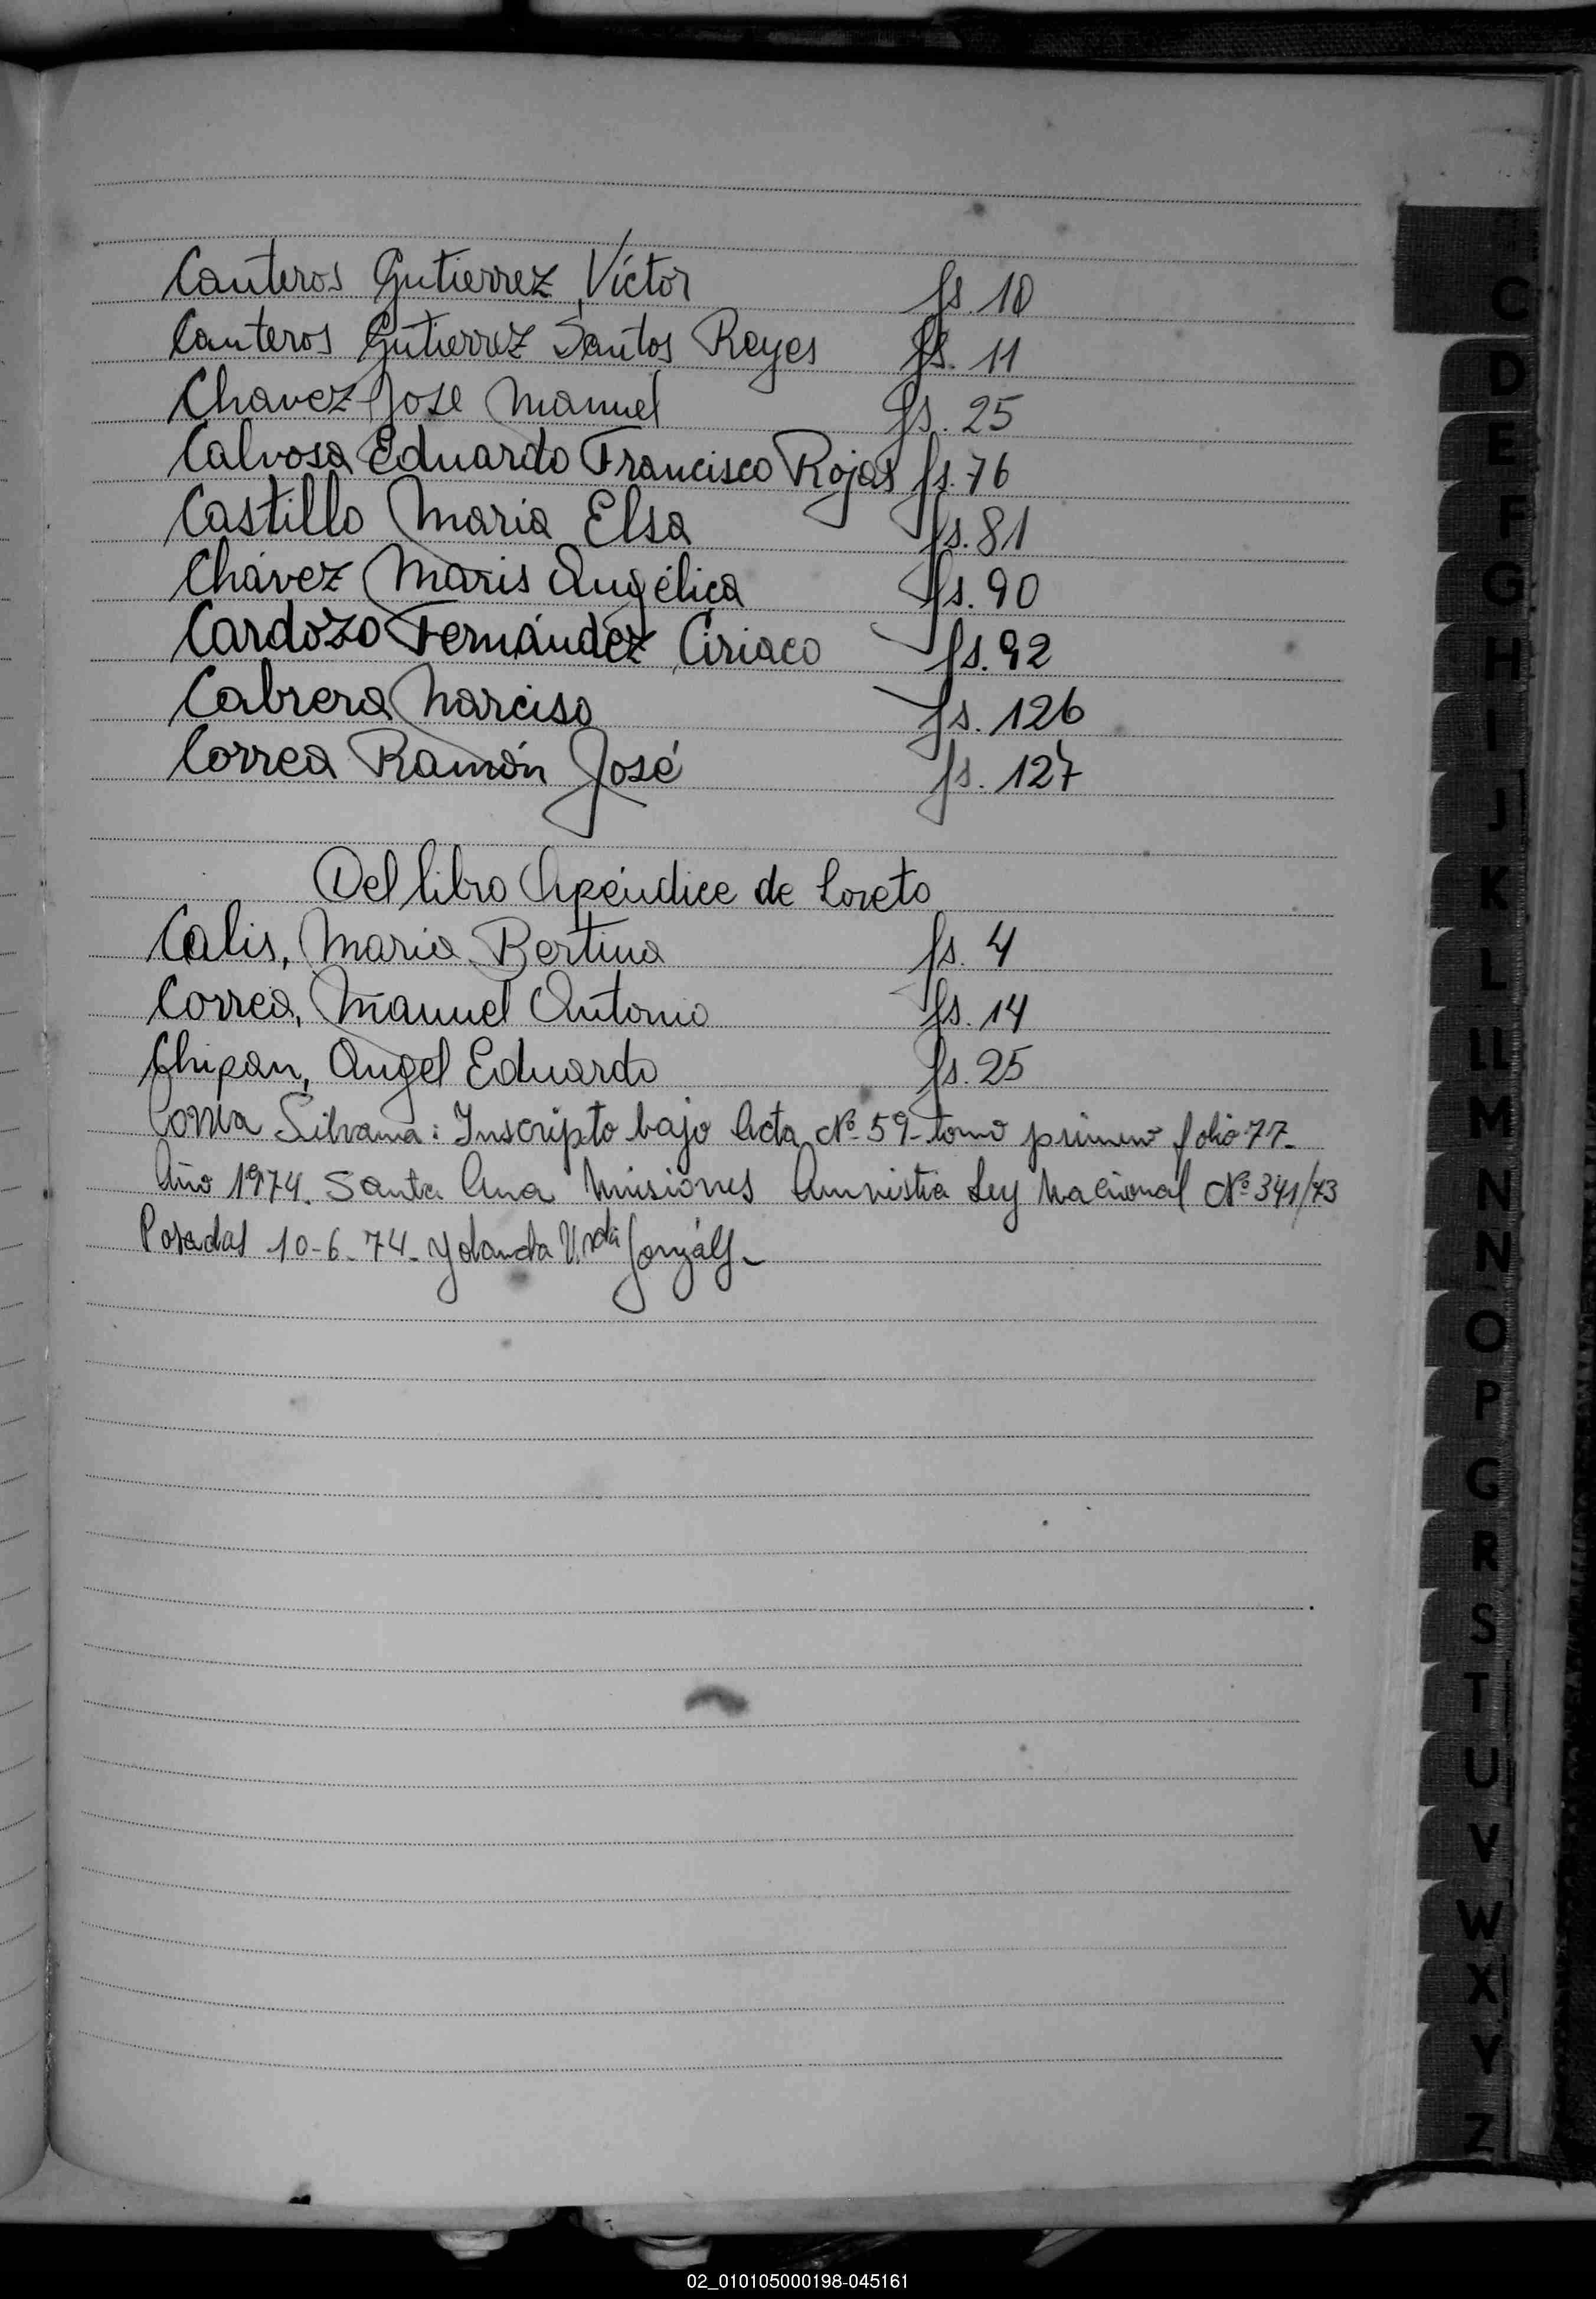 Canteros Gutierrez, Víctor fs. 10
Canteros Gutierrez Santos Reyes fs. 11
Chavez Jose Manuel fs. 25
Calvosa Eduardo Francisco Rojas fs. 76
Castillo Maria Elsa fs. 81
Chávez Maris Angélica fs. 90
Cardozo Fernández, Ciriaco fs. 92
Cabrera Narciso fs. 126
Correa Ramón José fs. 127
Del libro Apéndice de Loreto
Calis, Maria Bertina fs. 4
Correa, Manuel Antonio fs. 14
Chipan, Angel Eduardo fs. 25
Correa Silvana: Inscripto bajo Acta Nº 59- tomo primero folio 77-
Año 1974. Santa Ana Misiones Amnistia Ley Nacional Nº 341/73
Posadas 10-6-74- Yolanda
C
D
E
F
G
H
I
J
K
L
LL
M
N
Ñ
O
P
G
R
S
T
U
V
W
X
Y
Z
02_010105000198-045161